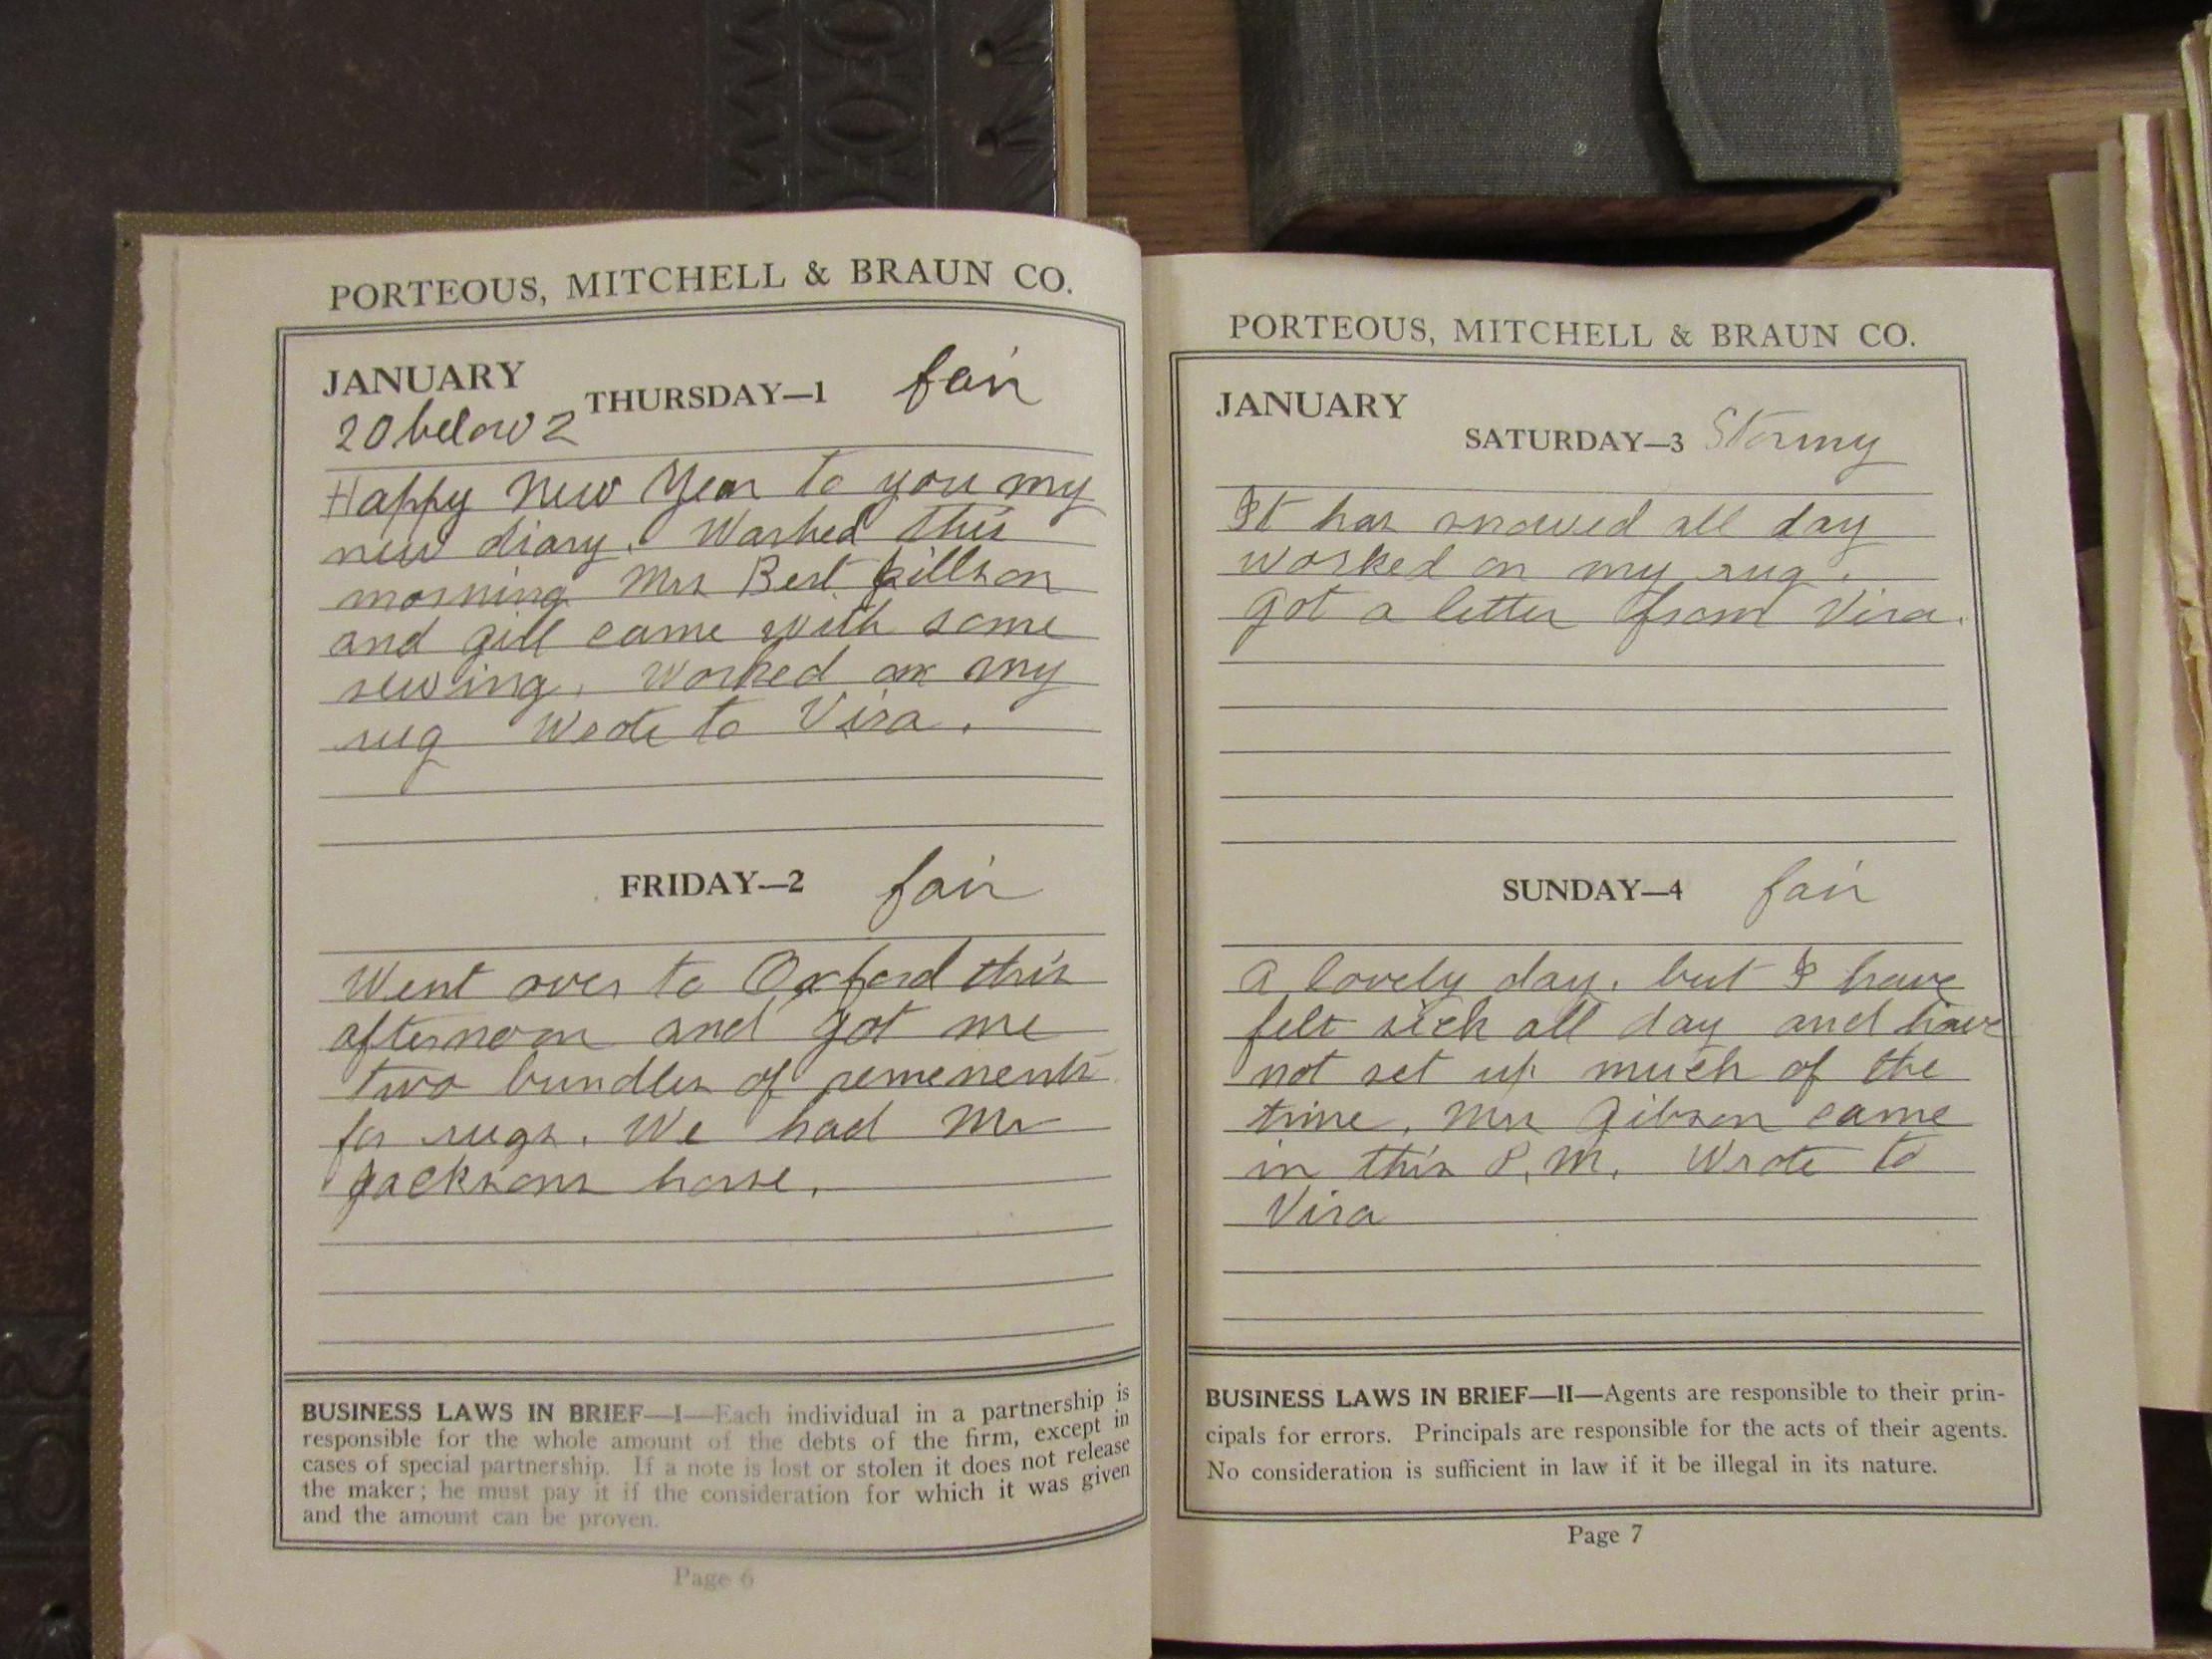 PORTEOUS, MITCHELL & BRAUN CO.
JANUARY
THURSDAY—1 fair
20 below Z
Happy New Year to you my
new diary. Washed this
morning Mrs Bert Jillson
and gill came with some
sewing. Worked on my
rug Wrote to Vira.
FRIDAY—2 fair
Went over to Oxford this
afternoon and got me
two bundles of remenents
for rugs. We had Mr
Jacksons horse.
BUSINESS LAWS IN BRIEF—I—Each individual in a partnership is
responsible for the whole amount of the debts of the firm, except in
cases of special partnership. If a note is lost or stolen it does not release
the maker; he must pay it if the consideration for which it was given
and the amount can be proven.
Page 6
PORTEOUS, MITCHELL & BRAUN CO.
JANUARY
SATURDAY—3 Stormy
It has snowed all day
worked on my rug.
got a letter from Vira.
SUNDAY—4 fair
A lovely day, but I have
felt sick all day and have
not set up much of the
time. Mrs Gibson came
in this P.M. Wrote to
Vira
BUSINESS LAWS IN BRIEF—II—Agents are responsible to their prin-
cipals for errors. Principals are responsible for the acts of their agents.
No consideration is sufficient in law if it be illegal in its nature.
Page 7